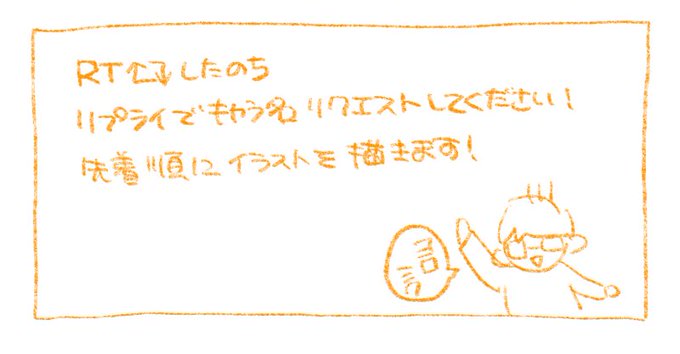 RTしたのち
リプライでキャラ名リクエストしてください!
先着順にイラストを描きます!
ヨロ
ミク